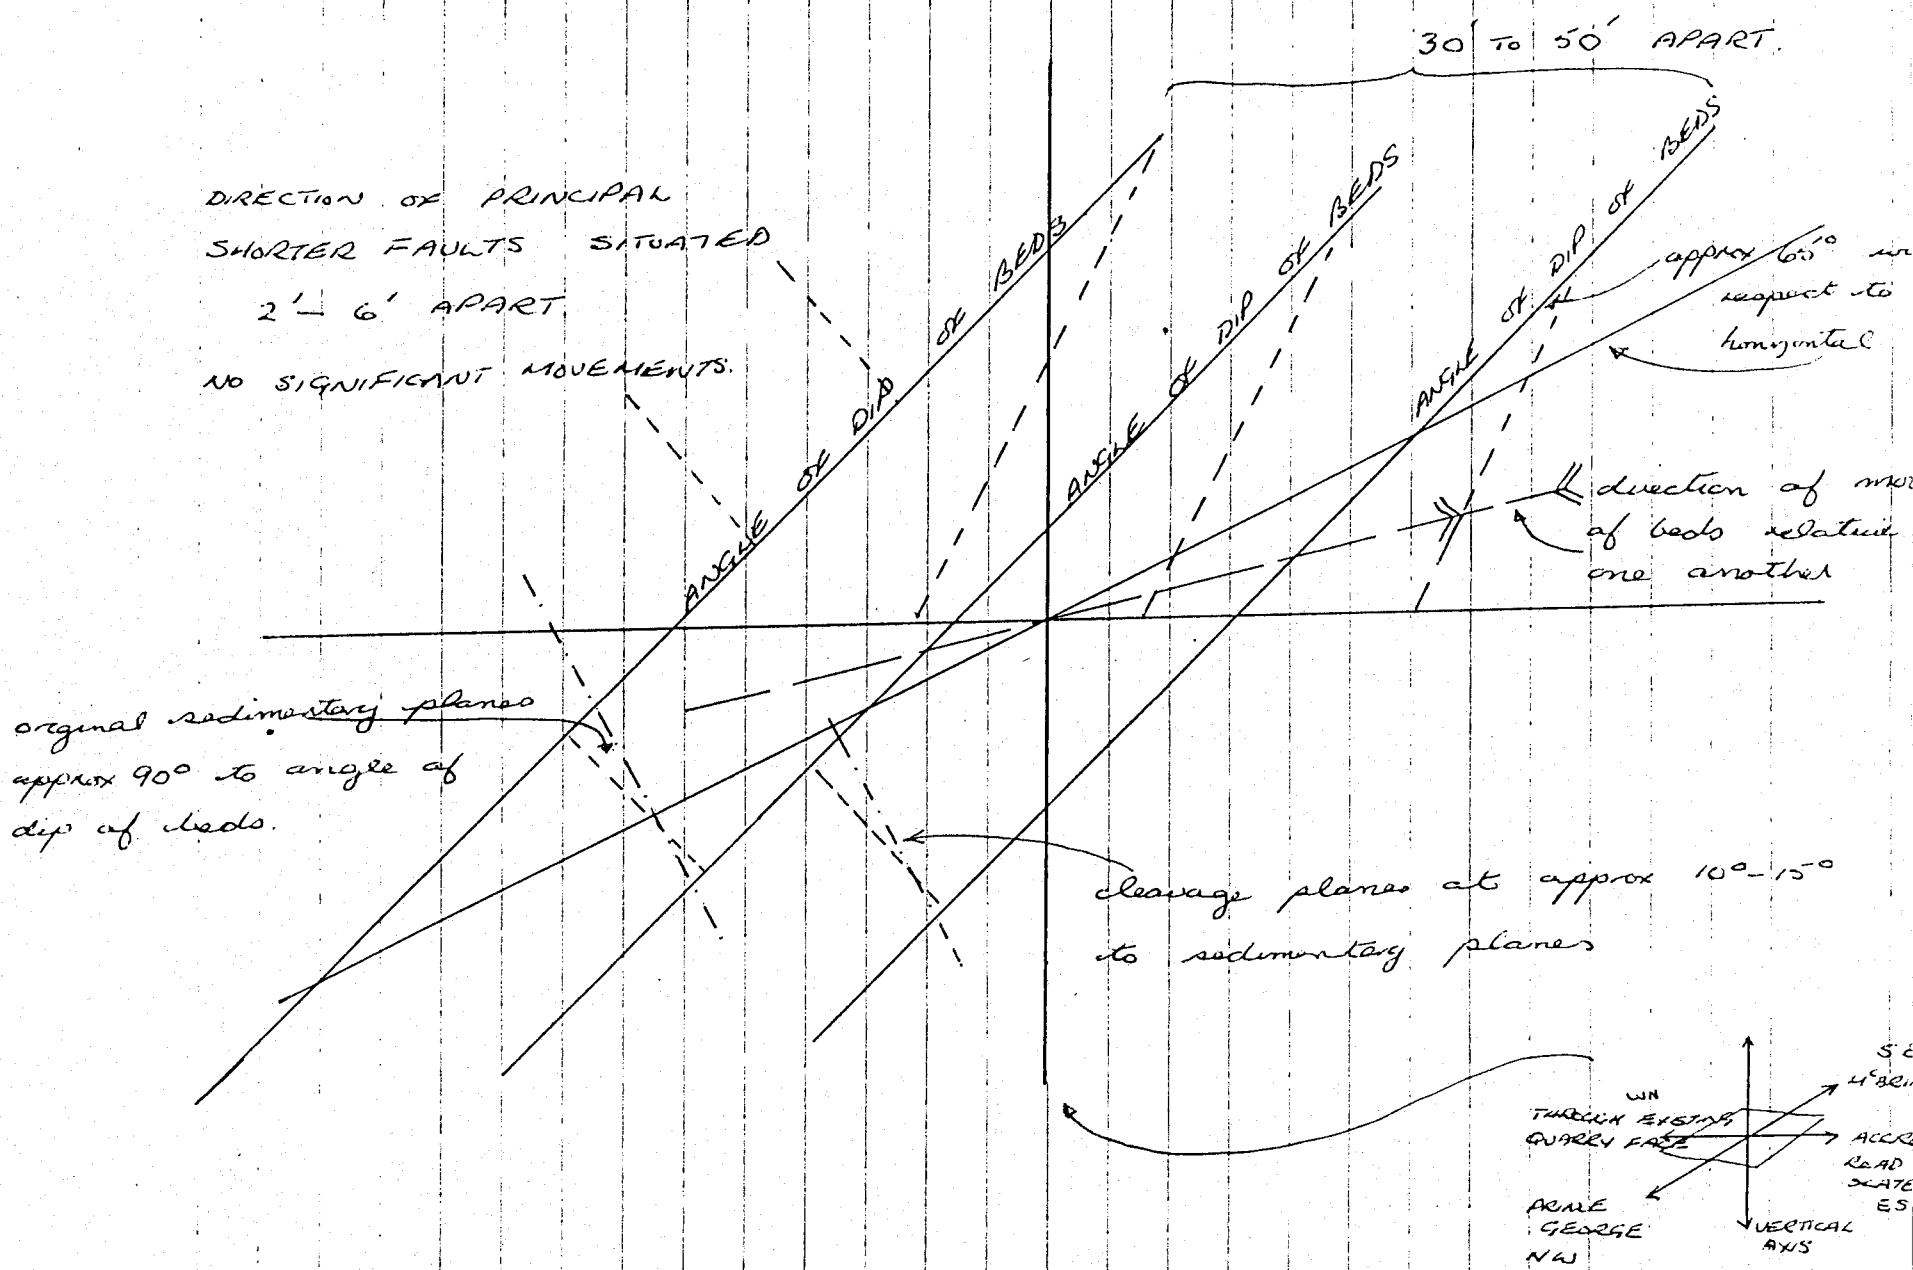 30' TO 50' APART.
DIRECTION OF PRINCIPAL
SHORTER FAULTS SITUATED
2' - 6' APART.
NO SIGNIFICANT MOVEMENTS.
ANGLE OF DIP OF BEDS
ANGLE OF DIP OF BEDS
ANGLE OF DIP OF BEDS
approx 65°
respect to
horizontal
direction of
of beds relative
one another
orginal sedimentary planes
approx 90° to angle of
dip of beds.
cleavage planes at approx 10° - 15°
to sedimentary planes
WN
THROUGH EXISTING
QUARRY FACE
ROAD
GEORGE
NW
VERTICAL
AXIS